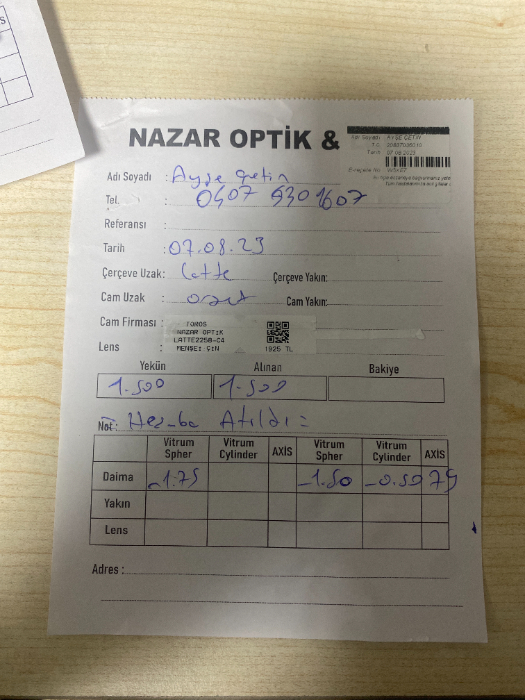 NAZAR OPTİK &
Adı Soyadı : AYŞE ÇETİN
T.C.
Tarih : 07.08.2023
Adı Soyadı : Ayşe Çetin
Tel. : 0407 9301607
Referansı :
Tarih : 07.08.23
Çerçeve Uzak: Latte Çerçeve Yakın:
Cam Uzak : Cam Yakın:
Cam Firması :
TOROS
NAZAR OPTİK
LATTE2250-C4
Lens :
MENŞEİ: ÇİN 1925 TL
Yekün Alınan Bakiye
1.500 1.500
Not: Hesaba Atıldı =
Vitrum Spher Vitrum Cylinder AXİS Vitrum Spher Vitrum Cylinder AXİS
Daima -1.75 -1.50 -0.50 75
Yakın
Lens
Adres :